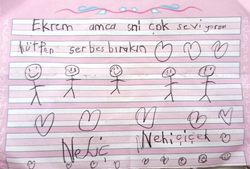 Ekrem amca sni çok seviyorum
lütfen serbes bırakın
Nehiç
Nehiçiçek